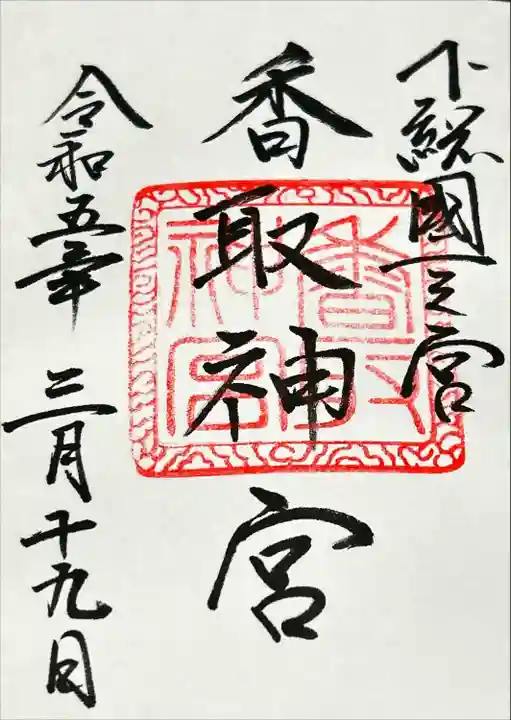 下總國一之宮
香取神宮
令和五年 三月十九日
香取神宮